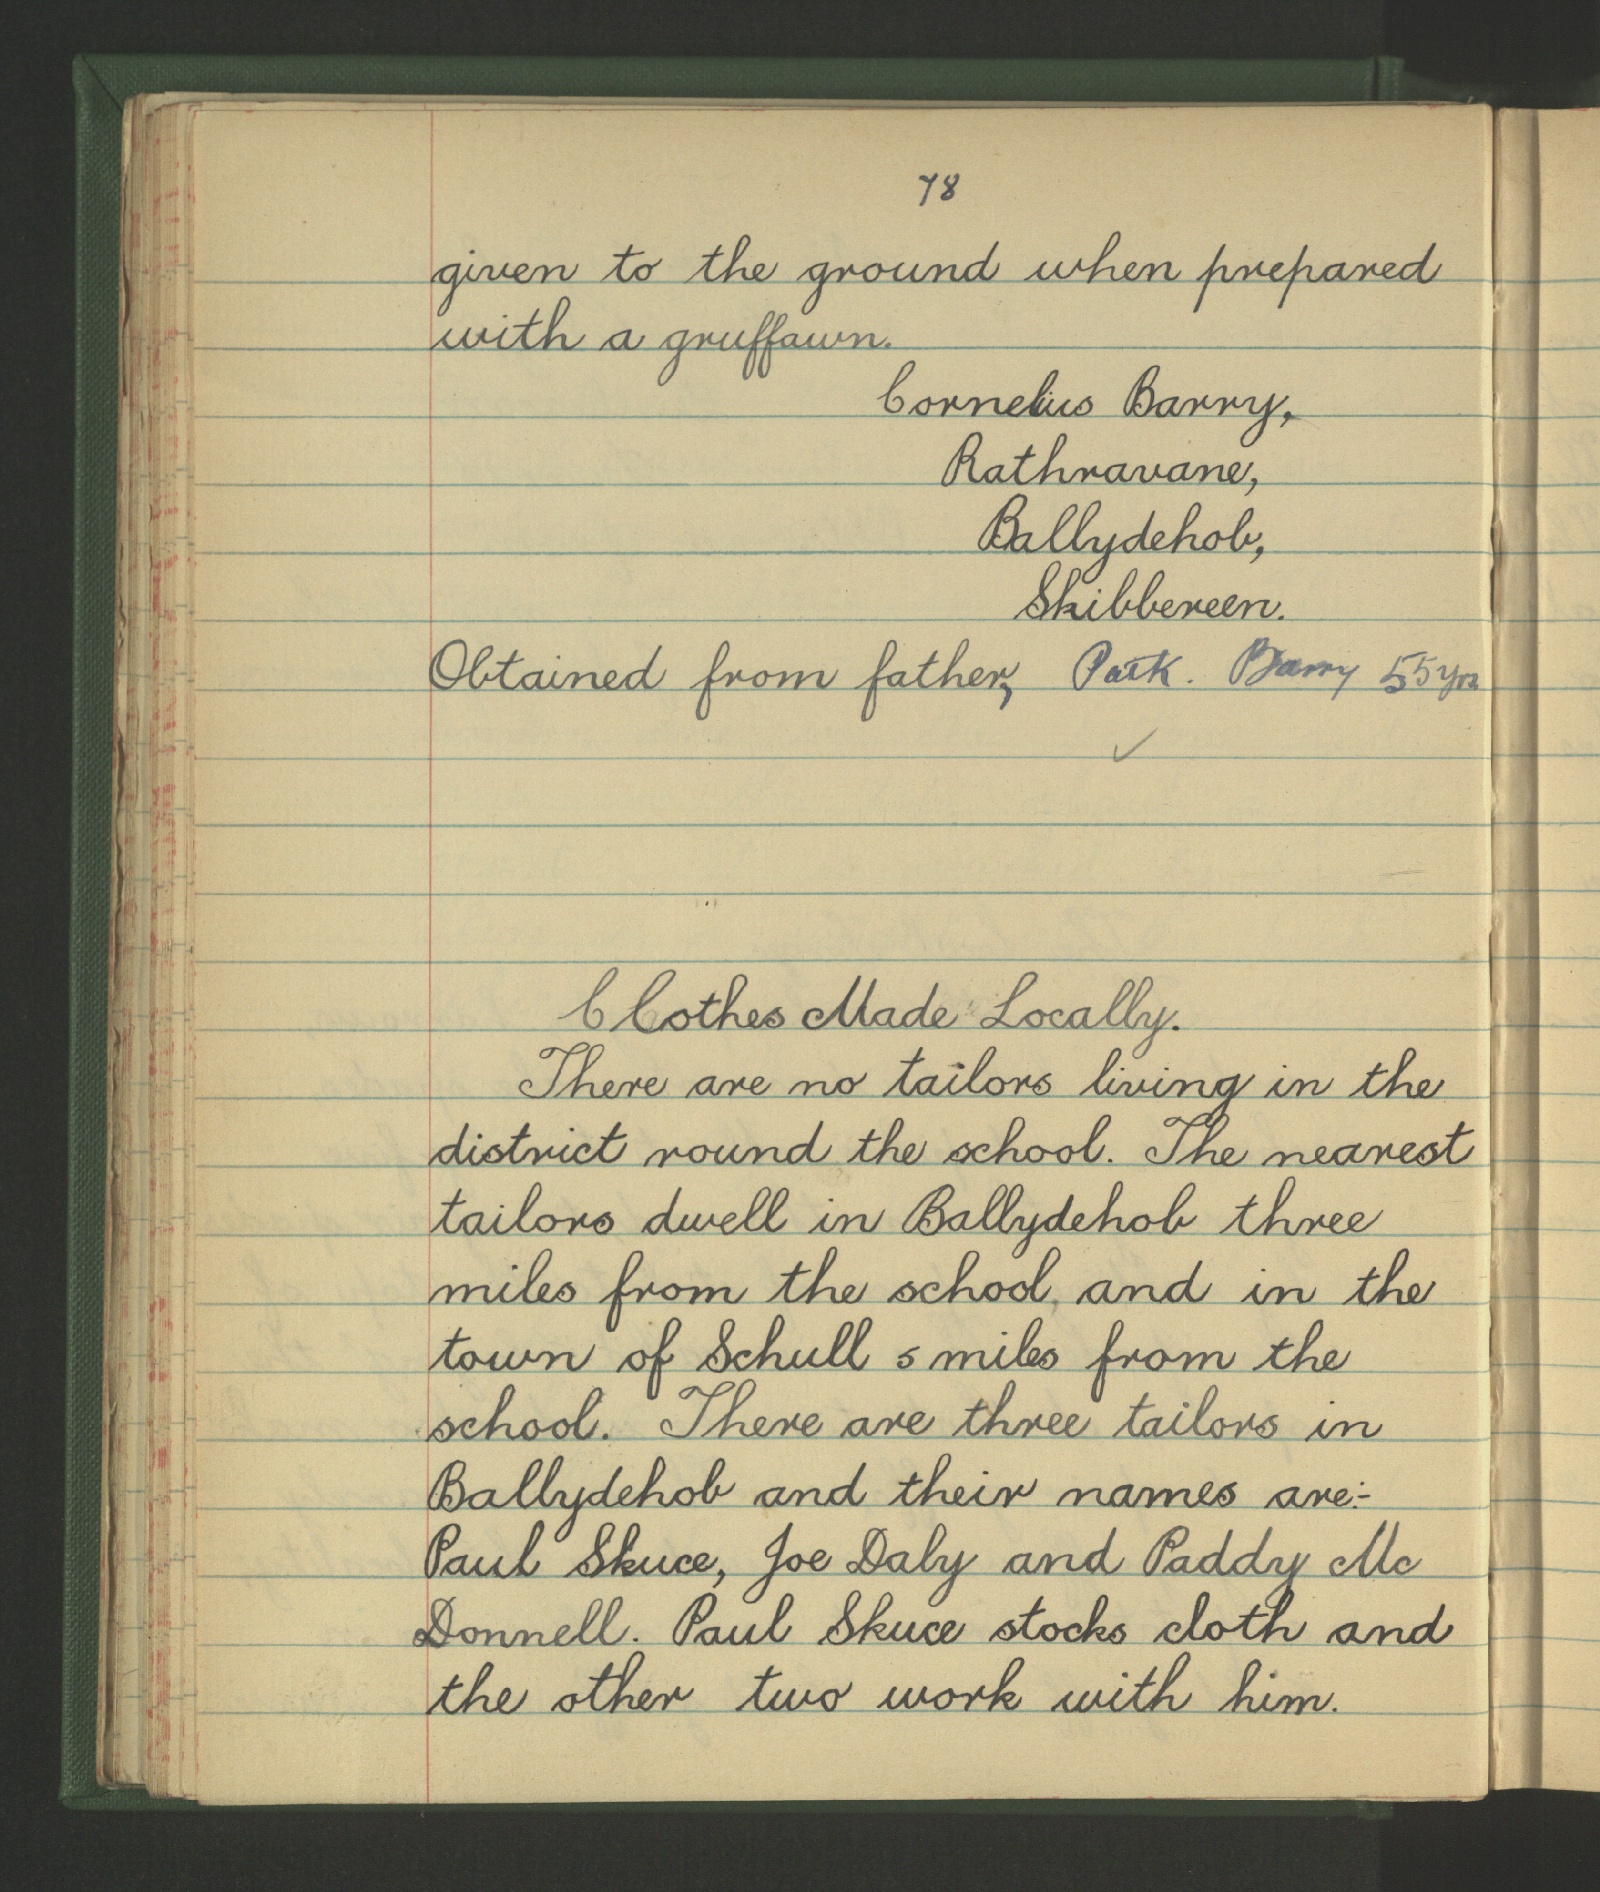 78
given to the ground when prepared
with a gruffawn.
Cornelius Barry,
Rathravane,
Ballydehob,
Skibbereen.
Obtained from father, Patk. Barry 55 yrs
Clothes Made Locally.
There are no tailors living in the
district round the school. The nearest
tailors dwell in Ballydehob three
miles from the school, and in the
town of Schull 5 miles from the
school. There are three tailors in
Ballydehob and their names are:-
Paul Skuce, Joe Daly and Paddy Mc
Donnell. Paul Skuce stocks cloth and
the other two work with him.